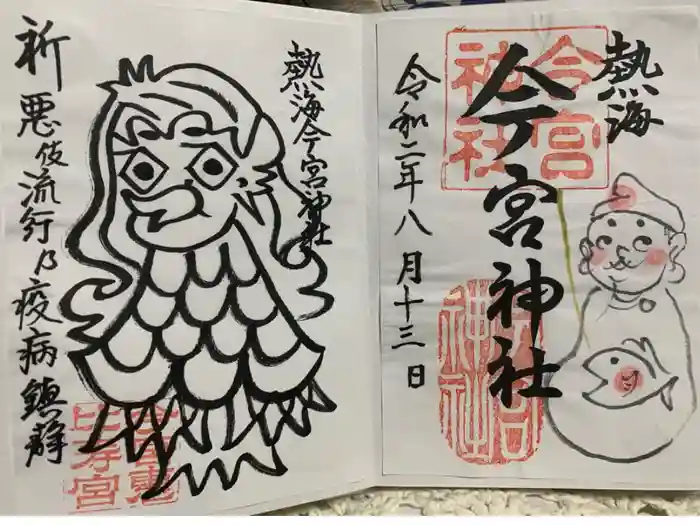 熱海
今宮神社
令和二年八月十三日
今宮
神社
熱海今宮神社
祈 悪伎流行乃疫病鎮静